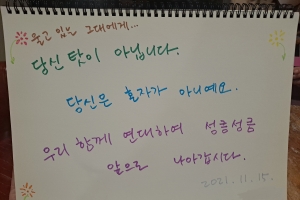 울고 있을 그대에게...
당신 탓이 아닙니다.
당신은 혼자가 아니예요.
우리 함께 연대하여 성큼성큼
앞으로 나아갑시다.
2021.11.15.